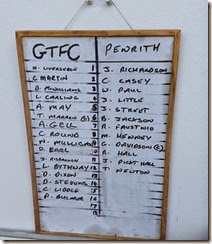 GTFC PENRITH
N. LIVERSEDGE 1 J. RICHARDSON
C MARTIN 2 C. CASEY
D. MCWILLIAMS 3 W. PAUL
L. CARLING 4 J. LITTLE
A. MAY 5 J. STREET
T. MARRON (G) 6 B. JACKSON
A. GELL 7 R. FAUSTINO
C ROUND 8 M. HENNEY
N. MULLIGAN 9 G. DAVIDSON (G)
D. EARL 10 R. HALL
J. 11 J. HALL
L. BYTHWAY 12 T. NEWTON
D. DIXON 13
D. STEVENS 14
C. LIDDLE 15
P. BULMER 16
17
18